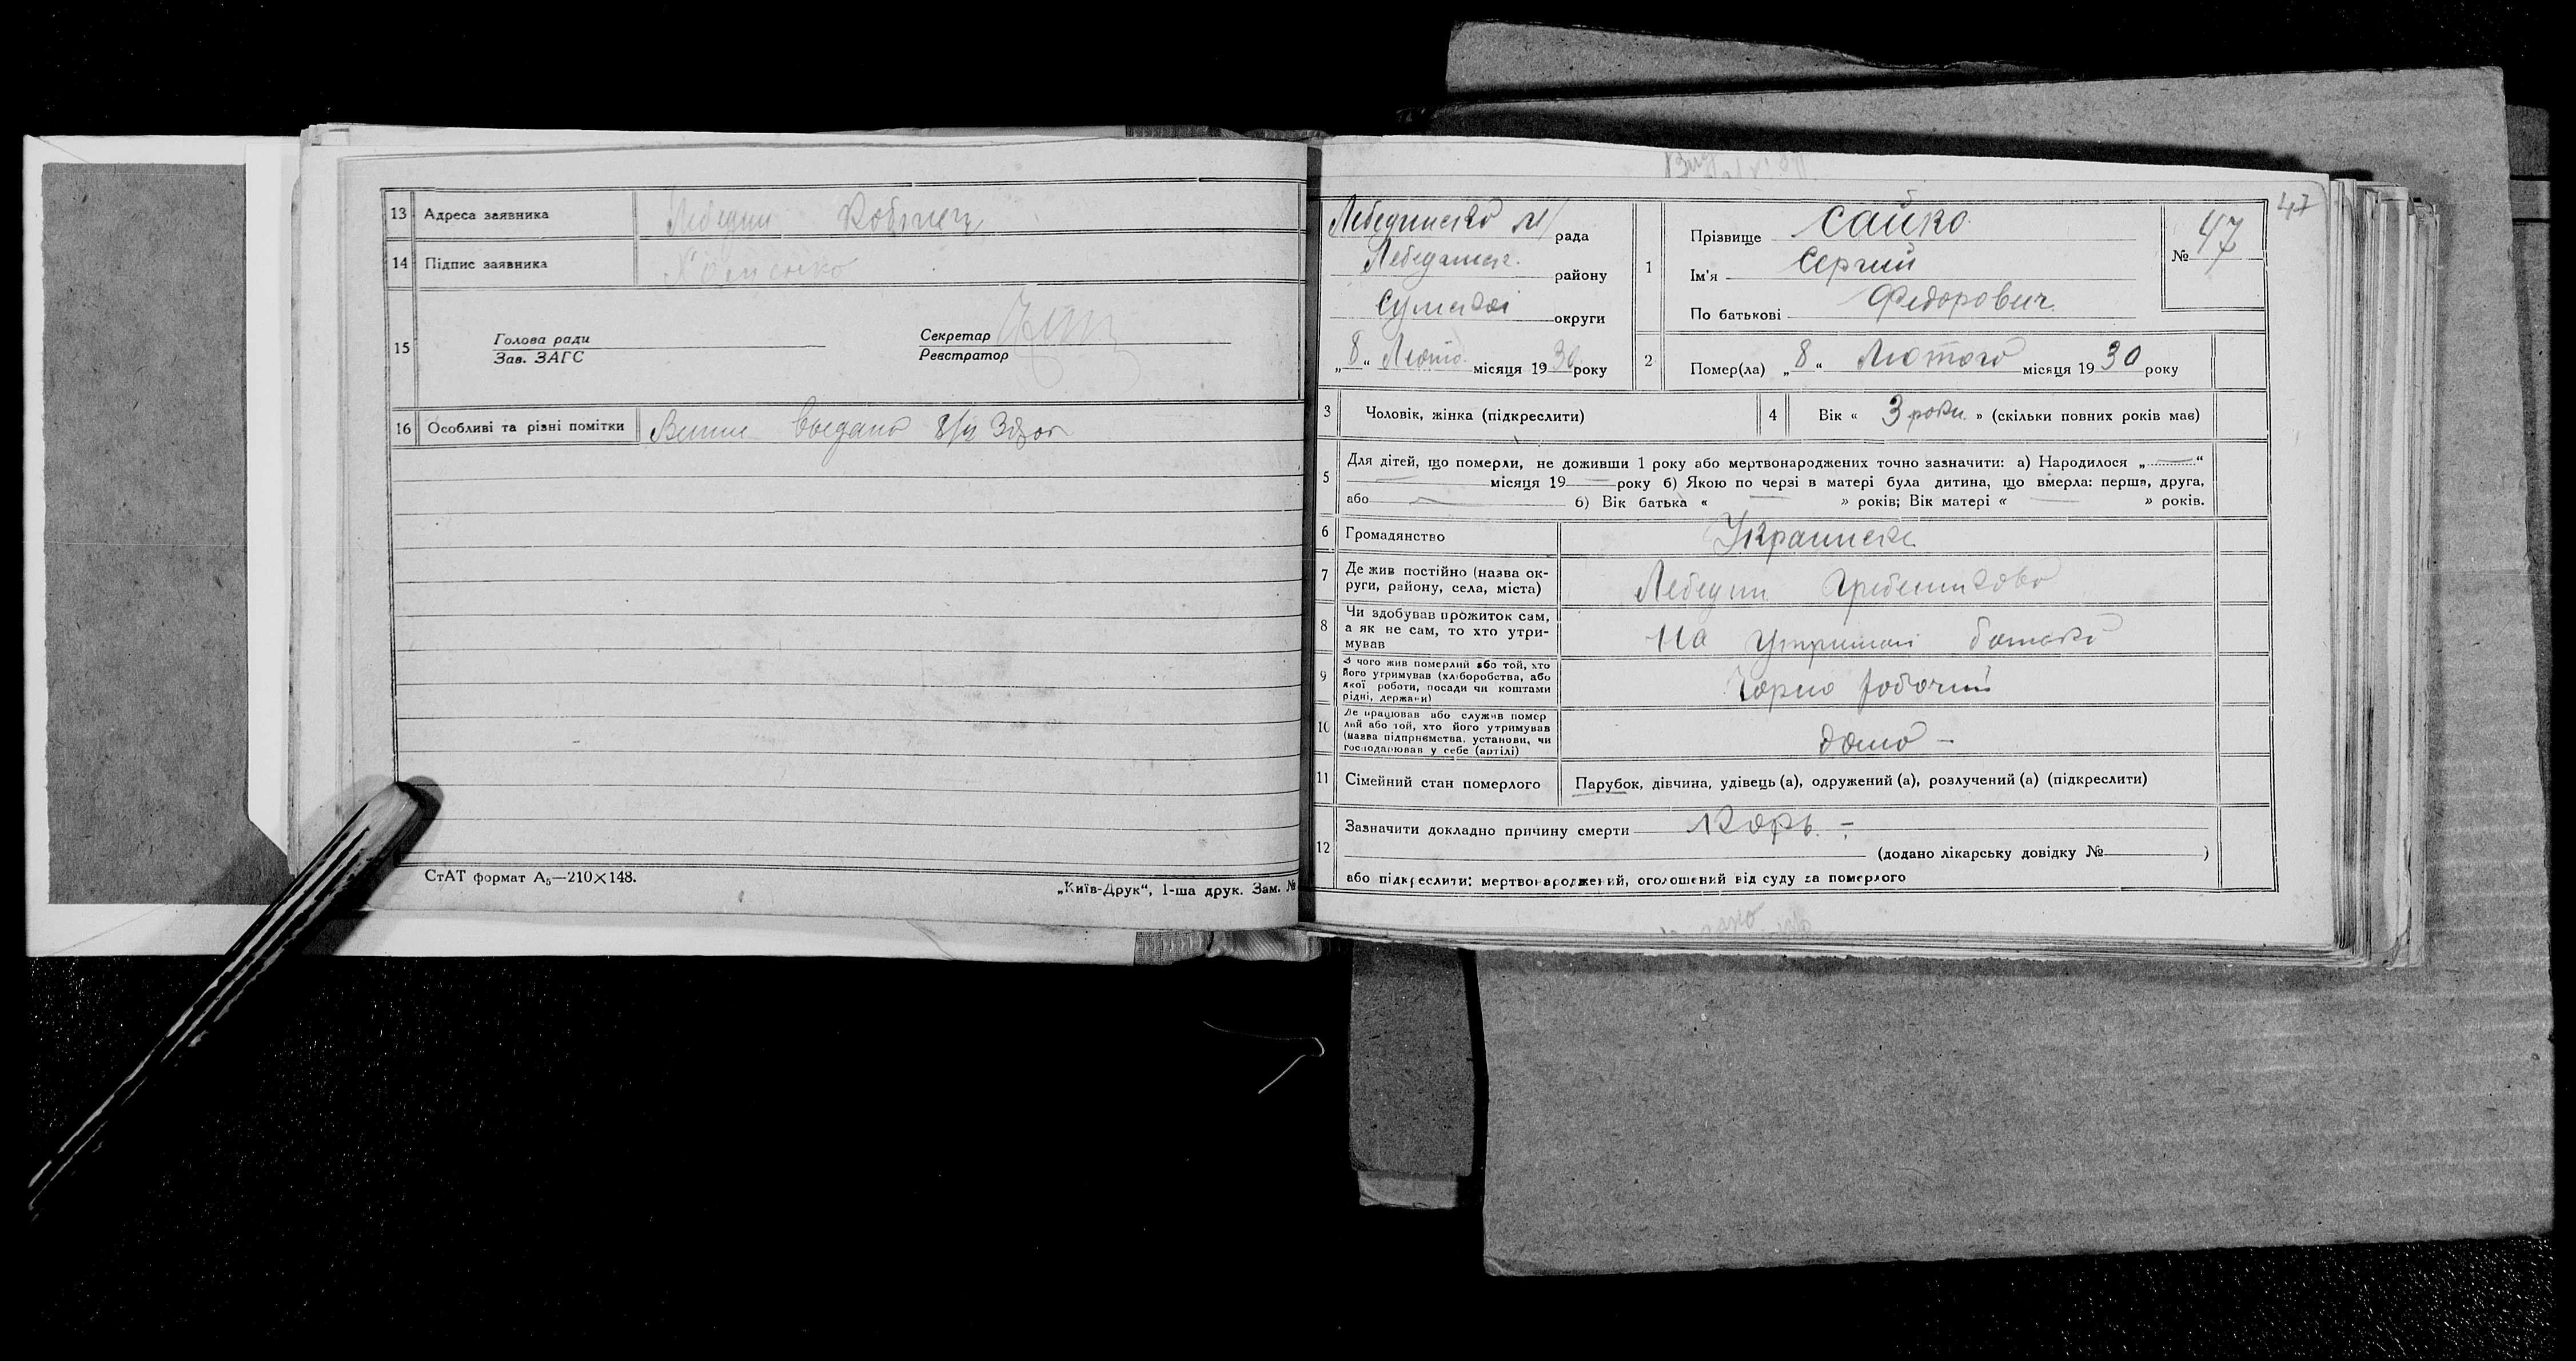 13 Адреса заявника Лебедин Кобижец
14 Підпис заявника
15 Голова ради
Зав. ЗАГС
Секретар
Реєстратор
16 Особливі та різні помітки Виписъ выдано 8/II 30 г.
СтАТ формат А5—210×148.
„Київ-Друк“, 1-ша друк. Зам. №
47
Лебединсько м/ рада
Лебединск. району
Сумської округи
„8“ Люто місяця 1930 року
1 Прізвище Сайко
Ім'я Сергий
По батькові Федорович
№ 47
2 Помер(ла) „8“ Лютого місяця 1930 року
3 Чоловік, жінка (підкреслити)
4 Вік « 3 роки » (скільки повних років має)
5 Для дітей, що померли, не доживши 1 року або мертвонароджених точно зазначити: а) Народилося „—“
— місяця 19— року б) Якою по черзі в матері була дитина, що вмерла: перша, друга,
або — б) Вік батька « — » років; Вік матері « — » років.
6 Громадянство Украинска
7 Де жив постійно (назва ок-
руги, району, села, міста) Лебедин Гребениково
8 Чи здобував прожиток сам,
а як не сам, то хто утри-
мував На утримані батькі
9 З чого жив померлий або той, хто
його утримував (хліборобства, або
якої роботи, посади чи коштами
рідні, держави) Чорно робочий
10 Де працював або служив помер
лий або той, хто його утримував
(назва підприємства, установи, чи
господарював у себе (артілі) дома —
11 Сімейний стан померлого Парубок, дівчина, удівець (а), одружений (а), розлучений (а) (підкреслити)
12 Зазначити докладно причину смерти Корь. —
(додано лікарську довідку № )
або підкреслити: мертвонароджений, оголошений від суду за померлого